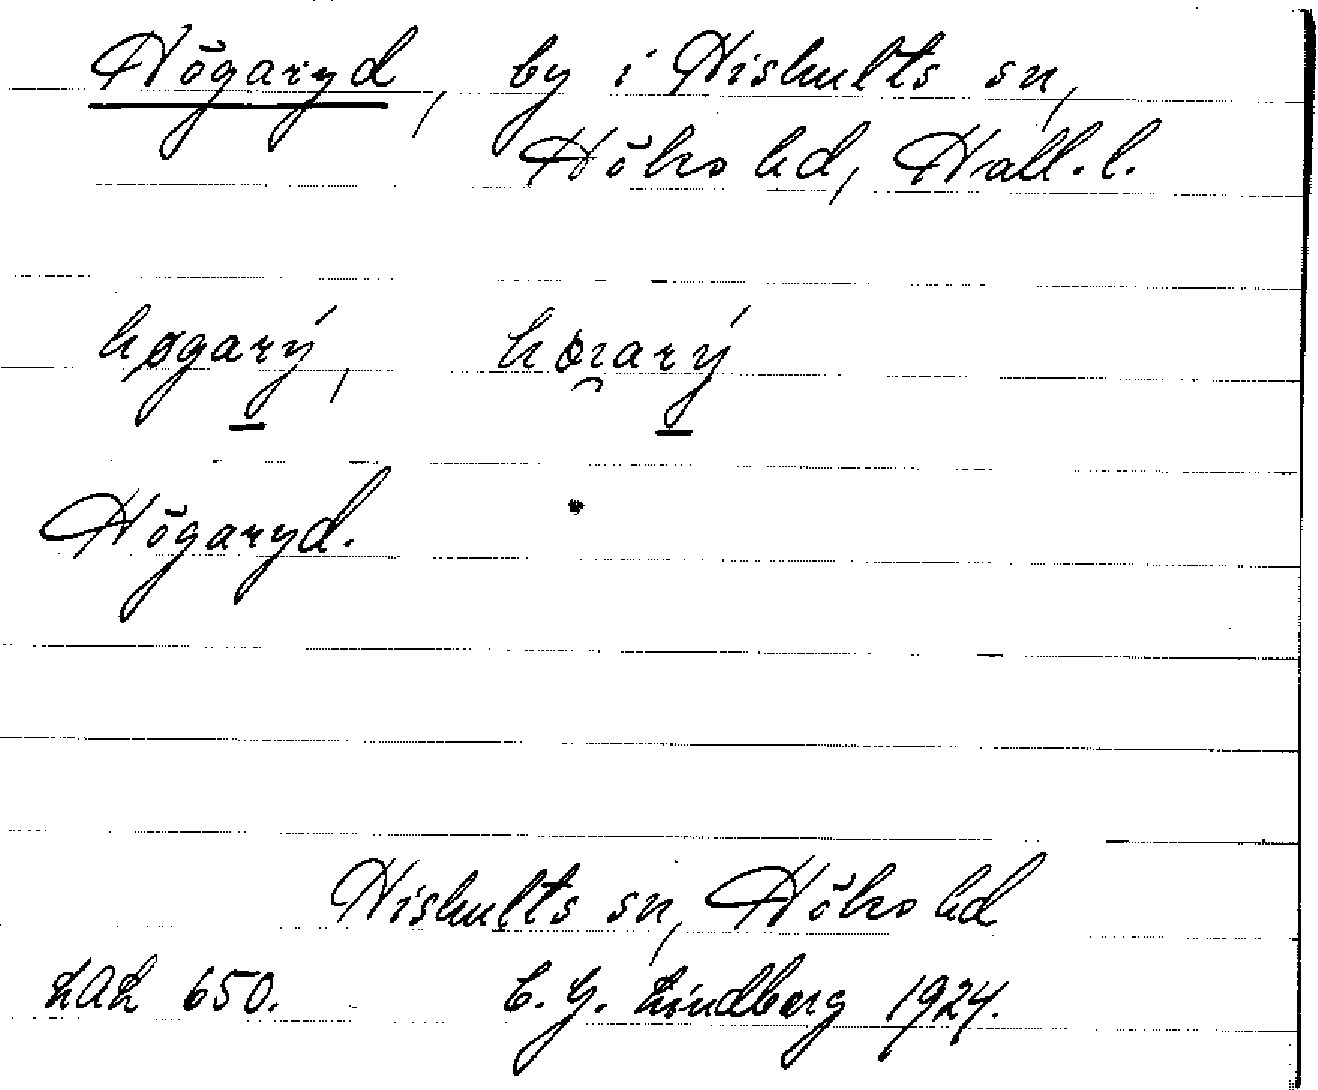 Högaryd, by i Hishults sn,
Höks hd, Hall. l.
høgarý, hörarý
Högaryd.
Hishults sn, Höks hd
LAL 650. C. G. Lindberg 1924.